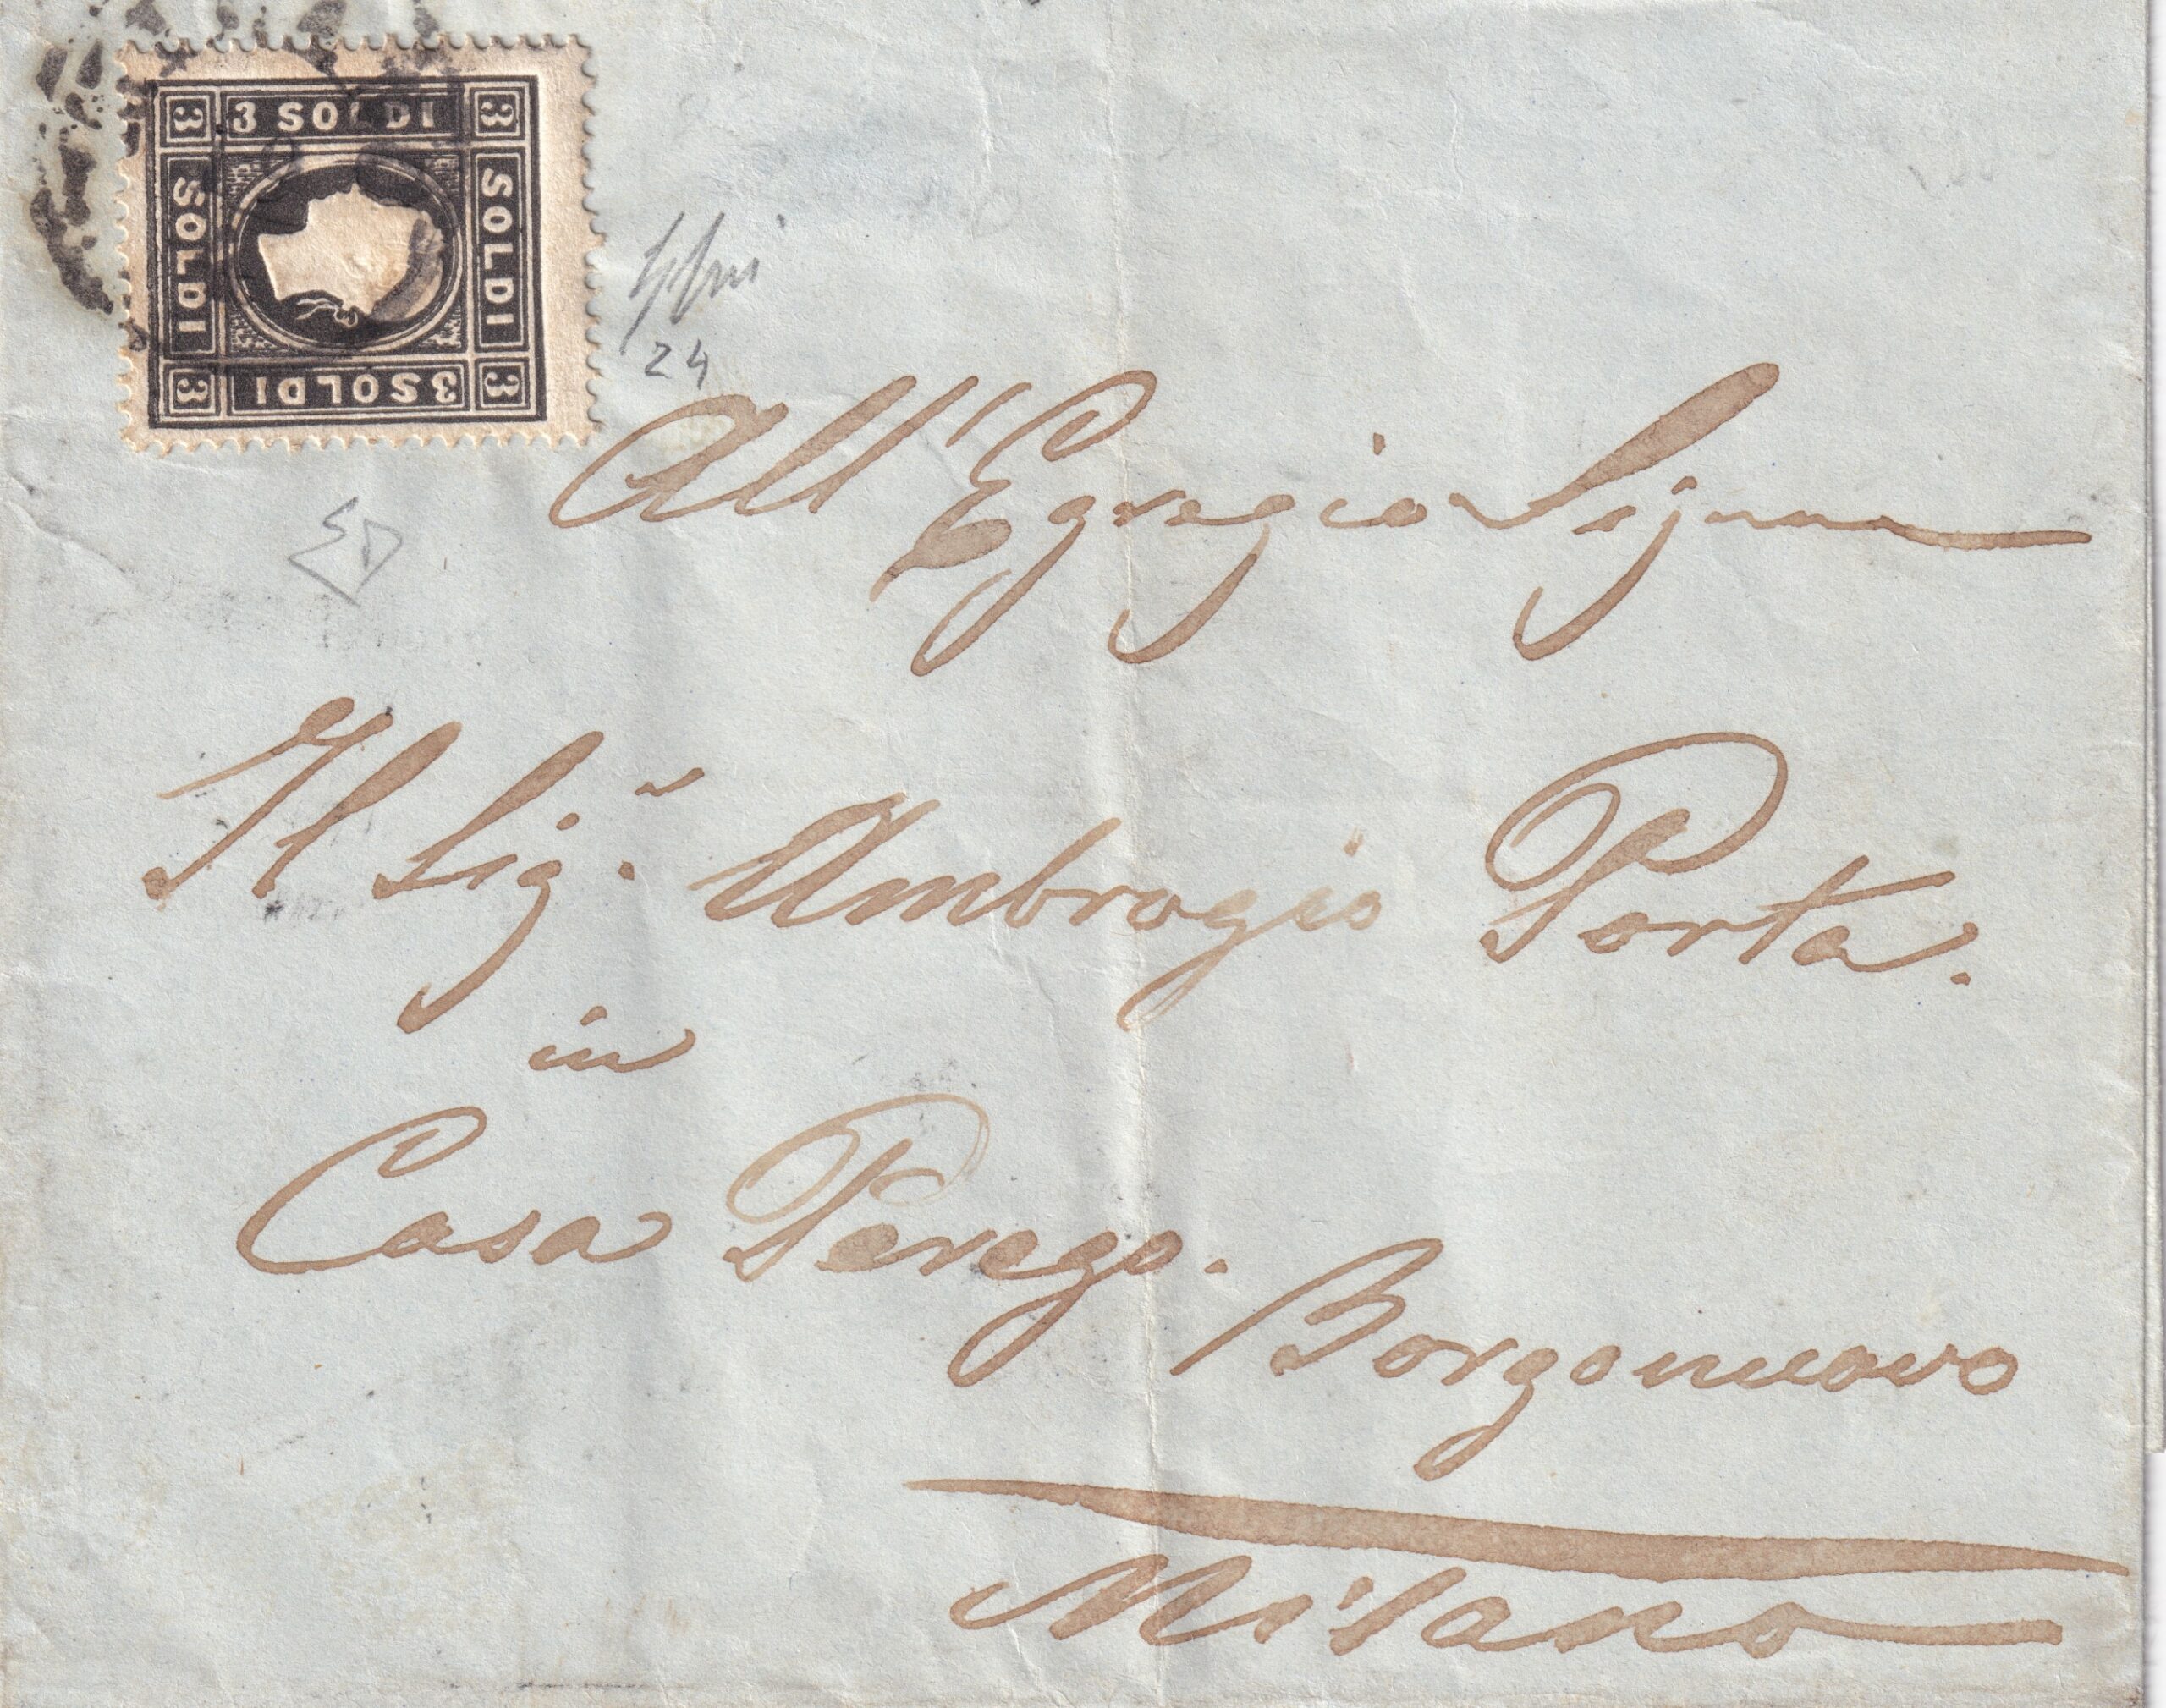 3 SOLDI
3
3
SOLDI
SOLDI
3 SOLDI
3
3
24
ED
All'Egregio Signore
Il Sig.r Ambrogio Porta.
in
Casa Perego. Borgonuovo
Milano